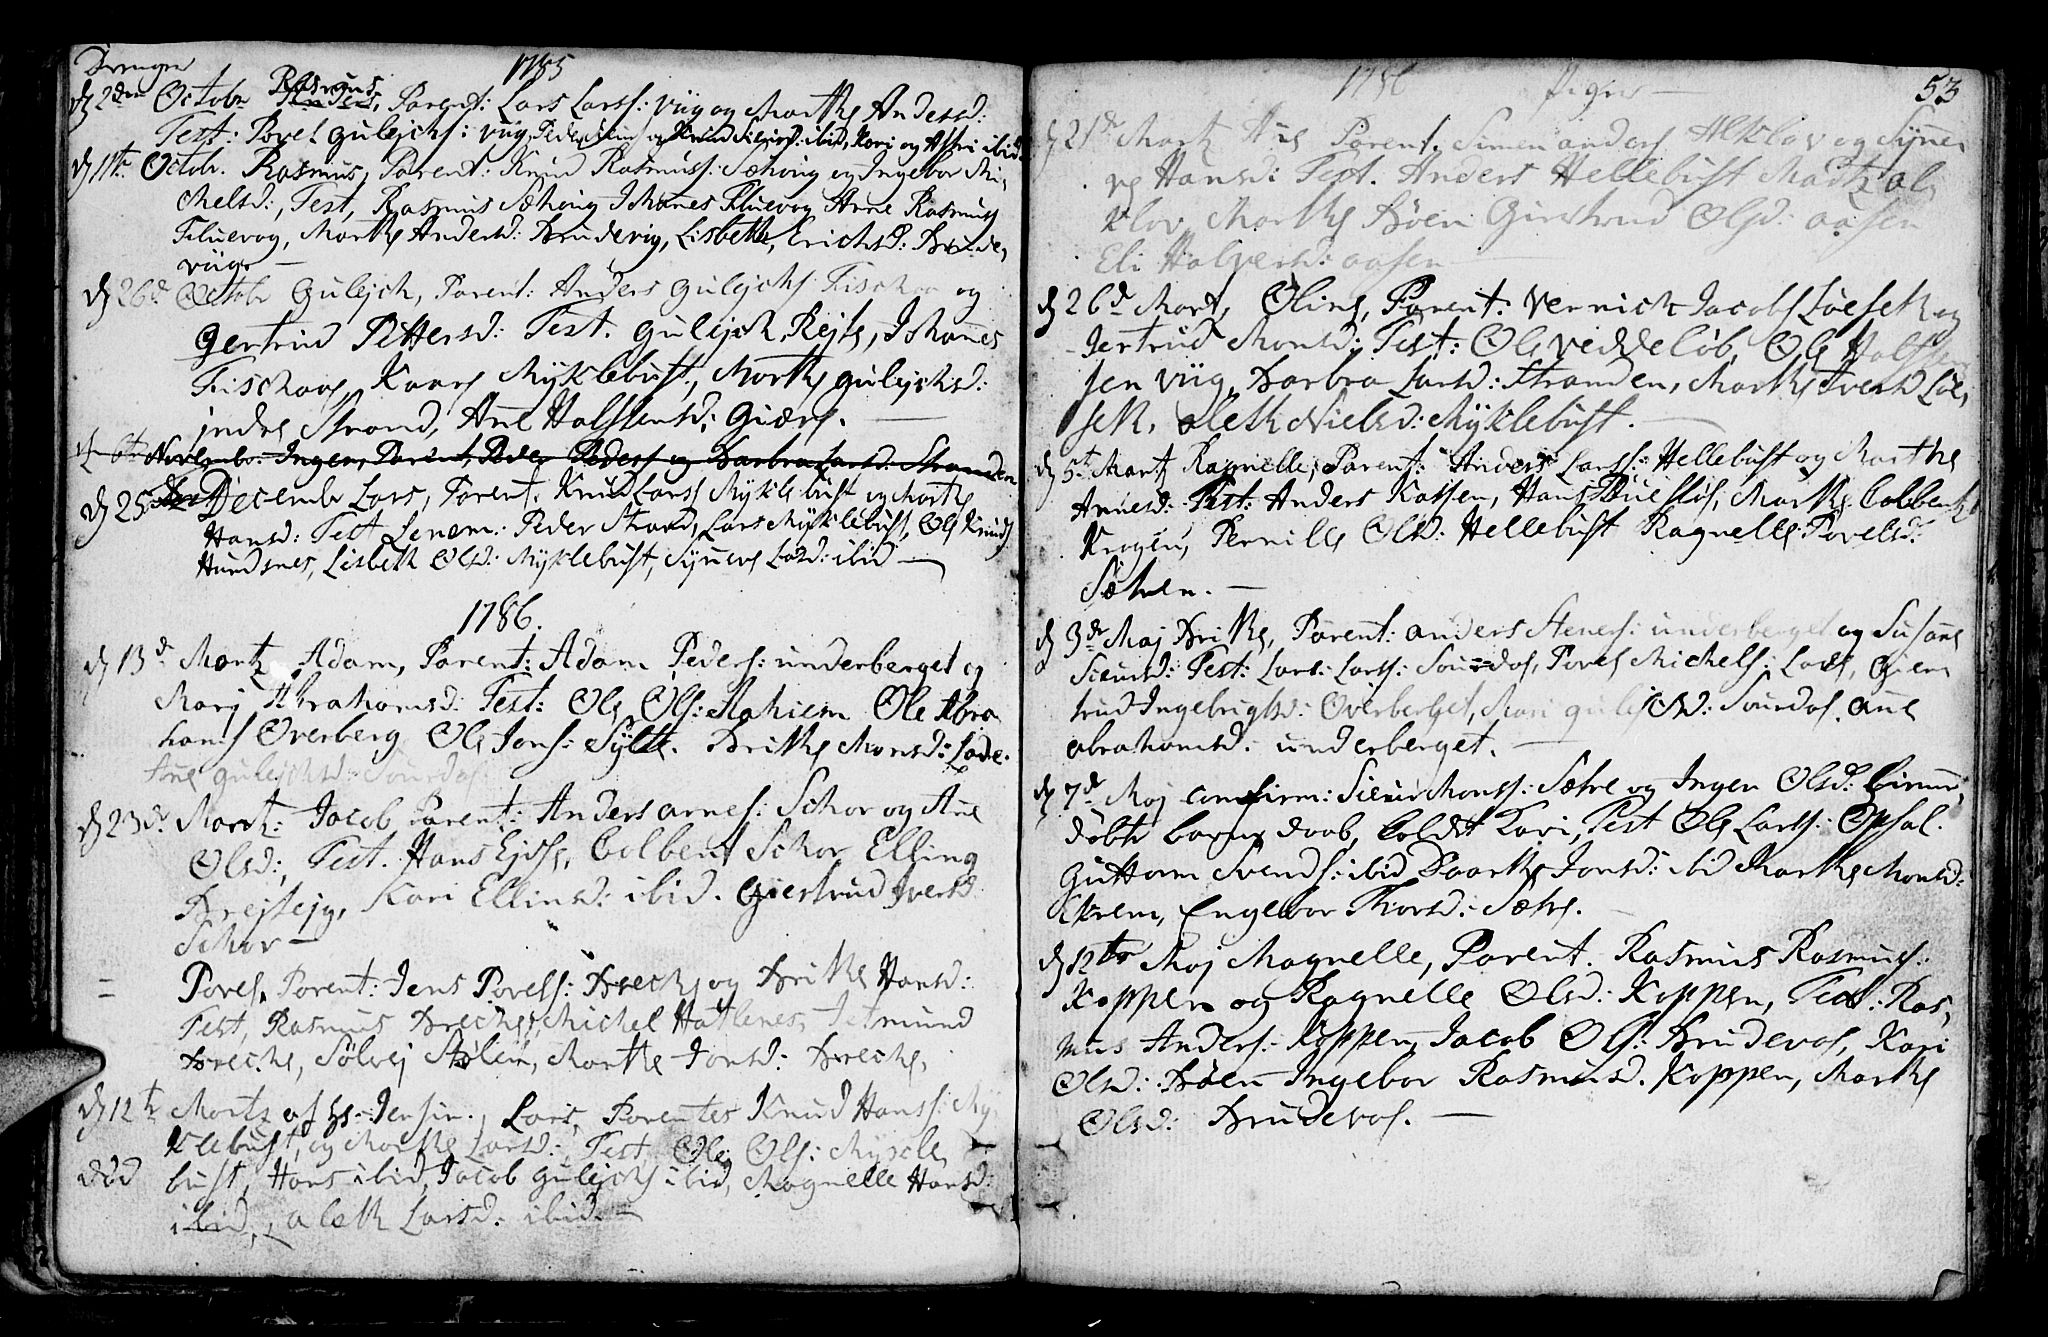 Drenger 1785
d 2den Octobr Rasmus, Parent: Lars Larss: Viig og Marthe Andersd:
Test: Povel Gulejchs: Viig, Peder ibid, Kari og ibid
d 11te Octobr. Rasmus, Parent: Knud Rasmuss: Sæhving og Ingebor Mi,
chelsd:, Test, Rasmus Sæhving Johanes Fluevog Arne Rasmuss
Fluevog, Marthe Andersd: Brudevig, Lisbeth, Erichsd: Brude,
viig —
d 26d Octobr Gulejch, Parent: Anders Gulejchs Fischaa og
Gertrud Pettersd: Test. Gulejch Rejte, Johanes
Fischaae, Kaare Myklebust, Marthe Gulejchsd:
indre Strand, Ane Halstensd: Giære. —
d 6te Novembr. Ingen, Parent, Peder Peders og Barbra Larsd: Stranden
d 25 Decembr Lars, Parent. Knud Larss Myklebust og Marthe
Hansd: Test Lenem: Peder Strand, Lars Myklebust, Ole Knuds
Hundsnes, Lisbeth Olsd: Myklebust, Synneve Larsd: ibid —
1786.
d 13d. Martz Adam, Parent: Adam Peders: underberget og
Marj Abrahamsd: Test: Ole Ols: Aahiem Ole Abra
hams Overberg Ole Jens: Sylte. Brithe Monsd: Lade.
Ane Gulejchsd: Sourdal
d 23d. Martz: Jacob Parent: Anders Arnes: Schor og Ane
Olsd:, Test. Hans Ejds, Colbent Schor Elling
Drejseje, Kari Ellinsd: ibid. Giertrud Iversd
Schor —
= Povel, Parent: Jens Povels: Breche og Brithe Hansd:
Test, Rasmus Breche, Michel Hatlenes, Jetmund
Breche, Sølvej Stølen, Marthe Jonsd: Breche,
d 12te Martz af Hr. Jensen. Lars, Parentes Knud Hanss: My,
klebust, og Marthe Larsd:, Test Ole Ols: Mycle,
død bust, Hans ibid, Jacob Gulejchs ibid, Magnelle Hansd:
ibid, Aleth Larsd: ibid. —
1786 Piger — 53
d 21de Martz Ane Parent. Simen Anders Alkslov og Syne,
ve Hansd: Test. Anders Hellebust Martz al,
klov, Marthe Bøen Giertrud Olsd: Aasen
Eli Halversd: Aasen —
d 26d Mart, Oline, Parent: Vernich Jacobs Løeseth og
Jertrud Monsd: Test: Ole Veddeløb, Ole
sen Viig, Barbra Larsd: Stranden, Marthe Iversd Løe,
seth, Aleth Nielsd: Myklebust. —
d 5te Martz Ragnelle, Parent: Anders Larss: Hellebust og Marthe
Arnesd: Test: Anders Kassen, Hans, Marthe Colbent
Krogen, Pernille Olsd: Hellebust Ragnelle Povelsd:
Sætren. —
d 3de Maj Brithe, Parent: Anders Steners: underberget og Susane
Siursd: Test: Lars Larss: Sourdal, Povel Michels: Lade, Gier
trud Ingebrigtsd: Overberget, Mari Gulejchsd: Sourdal, Ane
Abrahamsd. underberget. —
d 7d Maj confirm: Siur Monss: Sætre og Ingen Olsd:
døbte barns daab, kaldt Kari, Test Ole Larss: Opsal.
Guttorm Svends: ibid Marthe Jonsd: ibid Marthe Monsd:
Ekrem, Engebor Thorsd: Sætre. —
d 12te Maj Magnelle, Parent. Rasmus Rasmuss:
Koppen og Ragnelle Olsd: Koppen, Test: Ras,
mus Anders: Koppen, Jacob Ols: Brudevol, Kari
Olsd: Bøen Ingebor Rasmusd. Koppen, Marthe
Olsd: Brudevol. —